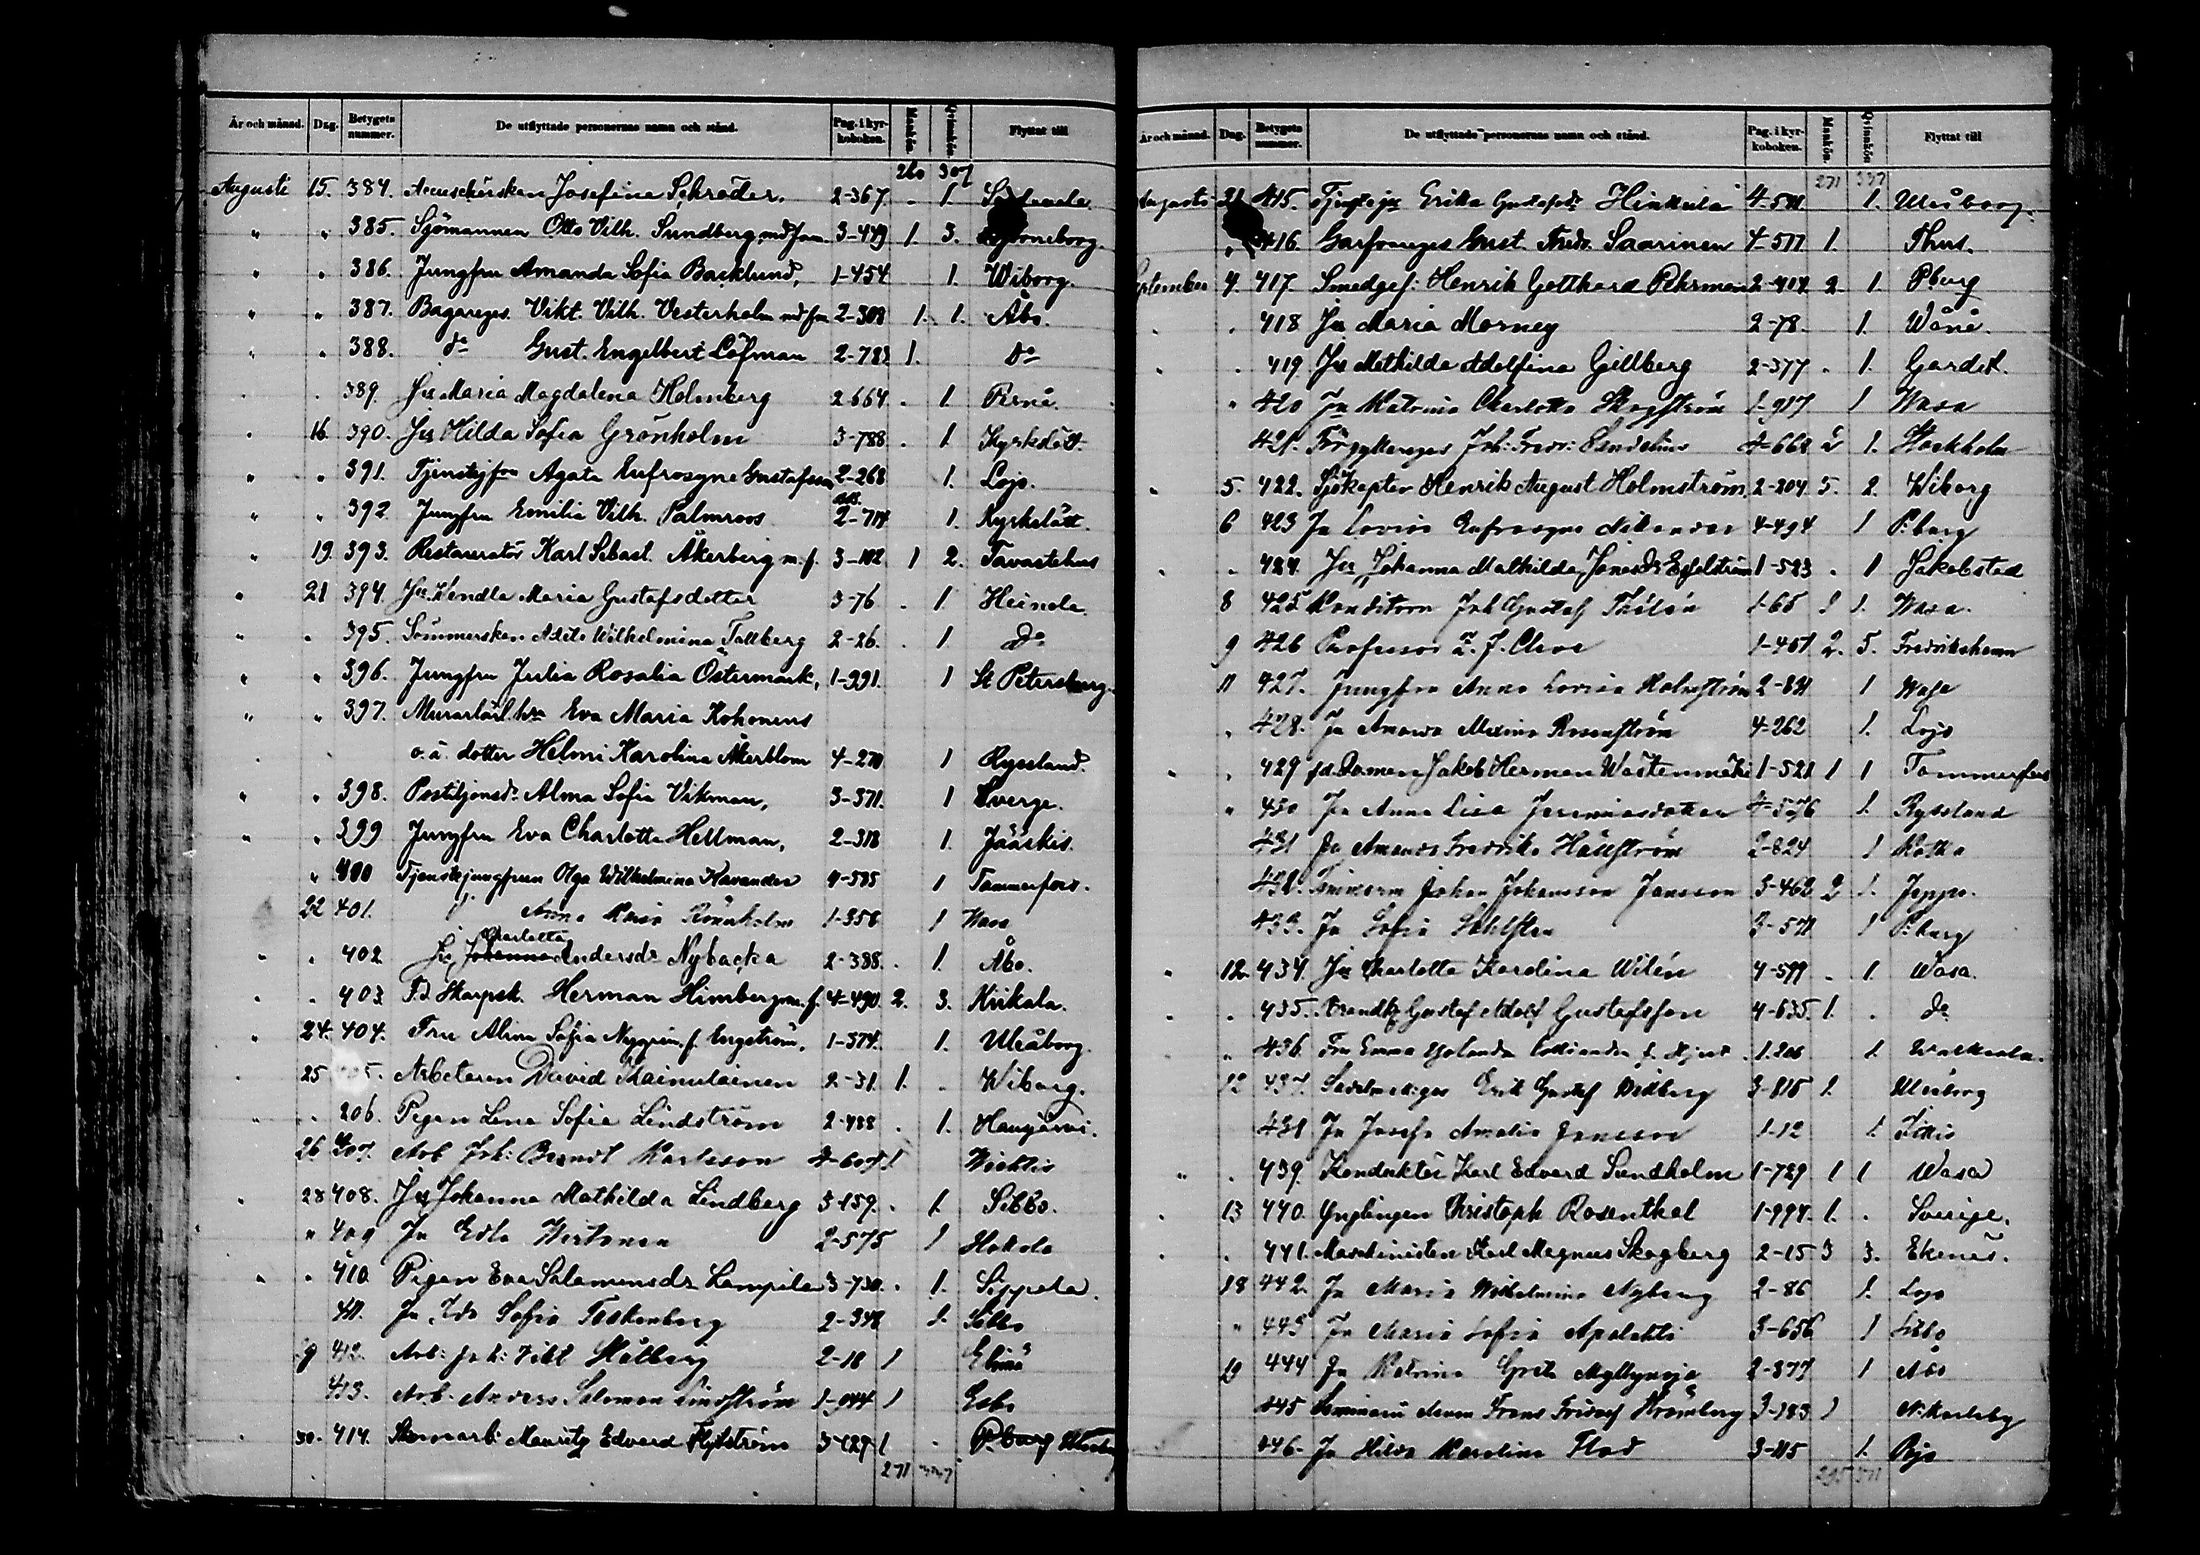 År och månad. Dag. Betygets nummer. De utflyttade personernas namn och stånd. Pag. i kyrkoboken. Mankön. Qvinnkön. Flyttat till
260 307
Augusti 15. 384. Josefina Schrøder. 2-367. - 1.
" " 385. Sjömannen Otto Vilh. Sundberg, md fam. 3-449 1. 3.
" " 386. Jungfru Amanda Sofia Backlund, 1-454 1. Wiborg.
" " 387. Bagareges. Vikt. Vilh. Vesterholm md fru 2-308 1. 1. Åbo.
" " 388. do Gust. Engelbert Löfman 2-783 1. do
389. Jfr Maria Magdalena Holmberg 2-664. . 1. Pernå.
16 390. Jfr Hilda Sofia Grönholm 3-788 . 1. Kyrkslätt.
" " 391. Tjenstejfrn Agata Eufrosyne Gustafsson 2-268 1. Lojo.
" " 392 Jungfru Emilia Vilh. Palmroos 2-714 1. Kyrkslätt.
" 19. 393. Restauratör Karl Sebast. Åkerberg m. f. 3-102 1 2. Tavastehus
" 21 394 Jfr Hendla Maria Gustafsdotter 3-76 . 1 Heinola
" " 395. Sömmerskan Adèle Wilhelmina Tallberg 2-26. . 1 do
" " 396. Jungfru Julia Rosalia Östermark, 1-991. 1 St Petersburg.
" " 397. Eva Maria Kohonens
o. ä. dotter Helmi Karolina Åkerblom 4-270 1 Ryssland.
" " 398. Postiljonsdr Alma Sofia Vikman, 3-371. 1 Sverge.
" " 399 Jungfru Eva Charlotta Hellman, 2-318 1. Jääskis.
" 400 Tjenstejungfrun Olga Wilhelmina Kavander 4-585 1 Tammerfors.
22 401. Anna Maria Rönnholm 1-356 1 Wasa
" " 402 Jfr Johanna Charlotta Andersdr Nybacka 2-388. . 1. Åbo.
" " 403 F.d. Skarpsk. Herman Himberg m. f. 4-490. 2. 3. Kirkala.
" 24. 404. Fru Alina Sofia Nygrén f. Engström, 1-574. 1. Uleåborg.
25 Arbetaren David Kainulainen 2-31. 1. . Wiborg.
" " 206. Pigan Lena Sofia Lindström 2-488 . 1. Hausjärvi.
26 407. Arb Joh: Berndt Karlsson 4-607 1 Wichtis
" 28 408. Jfr Johanna Mathilda Lindberg 3-159. . 1. Sibbo.
" 409 Jfr Edla Wirtanen 2-575 1 Hokola
" " 410. Pigan Eva Salomonsdr Lampila 3-730. . 1. Sippola.
411. Jfr Ida Sofia 2-348 1. Sibbo
412. Arb: Joh: Vikt Stålberg 2-18 1 Elimä
413. Arb. Anders Salomon Lindström 1-944 1 Esbo
30. 414. Mauritz Edvard Flykström 3-129 1 . P:borg
271 337

År och månad. Dag. Betygets nummer. De utflyttade personernas namn och stånd. Pag. i kyrkoboken. Mankön. Qvinnkön Flyttat till
271 337
Augusti 21 415. Erika Gustafsdr Hinkula 4-571 1. Uleåborg.
" 416. Garfvareges Gust. Fredr. Saarinen 4-577 1. Thus.
September 4. 417. Smedges: Henrik Gotthard Pehrman 2-404 2. 1. Pburg
. . 418 Jfr Maria Morney 2-78. 1. Wånå.
. . 419 Jfr Mathilda Adolfina Gillberg 2-377 . 1.
" 420 Jfr Katrina Charlotta Skogström 1-917 1 Wasa
421. Förgyllareges Joh: Fredr: Sandelius 4-668 2 1. Stockholm
" 5. 422. Sjökapten Henrik August Holmström 2-204. 5. 2. Wiborg
6 423 Jfr Lovisa Eufrosyne Nikander 4-494 1 P:burg
" " 424. Jfr Johanna Mathilda Jonasdr 1-523 . 1 Jakobstad
8 425 Konditorn Joh Gustaf Thilén 1-65 1 1. Wasa.
9 426 Professor Z. J. Cleve 1-461 2. 5. Fredrikshamn
11 427. Jungfru Anna Lovisa Holmström 2-831 1 Wasa
" 428. Jfr Amanda Maxima Rosenström 4-262 1. Lojo
" " 429 Jakob Herman Wästenmäki 1-521 1 1 Tammerfors
" 430 Jfr Anna Lisa Jeremiasdotter 4-576 1. Ryssland
431 Jfr Amanda Fredrika Häggström 2-824 1 Kotka
432. Timmerm Johan Johansson Jansson 3-462 2 1. Jeppo.
433. Jfr Sofia Sahlsten 3-571 1 P:burg
" 12. 434. Jfr Charlotta Karolina Wilén 4-599 . 1. Wasa.
. . 435. Gustaf Adolf Gustafsson 4-635. 1. . do
" 436. Fru Emma 1.206 1.
12 437. Sadelmak:ges Erik Gustaf Widberg 3-818 1. Uleåborg
438 Jfr Josefa Amalia Jansson 1-12 1. Sibbo
" . 439. Konduktör Karl Edvard Sundholm 1-729 1 1 Wasa
. 13 440. Ynglingen Christoph Rosenthal 1-994. 1. . Sverige.
. . 441. Maskinisten Karl Magnus Skogberg 2-15 3 3. Ekenäs.
18 442. Jfr Maria Wilhelmina Nyberg 2-86 1. Lojo
" 443 Jfr Maria Sofia 3-656 1 Sibbo
19 444 Jfr Katrina Greta Myllynoja 2-377 1 Åbo
445 Frans Fridolf Strömberg 3-183 1 N:Karleby
446. Jfr Hilda Karolina Flod 3-115 1.